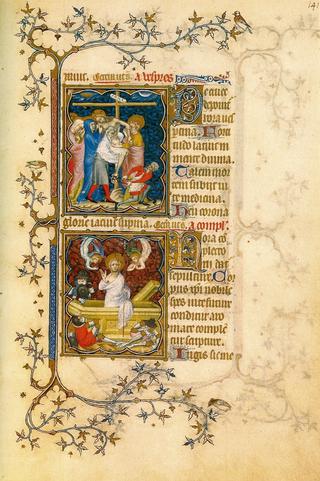 141
a uespres
De cruce
deponit
hora ues
pertina. Forti
tudo latuit in
mente diuina.
Talem mor
tem subiit ui
te medicina.
Heu corona
glorie iacuit supina. a compl'.
Hora co
pleto
rij dat'
sepulture. Cor
pus xpi nobile
spes uite future
conditur aro
mate complē
tur scripture.
Iugis sit me